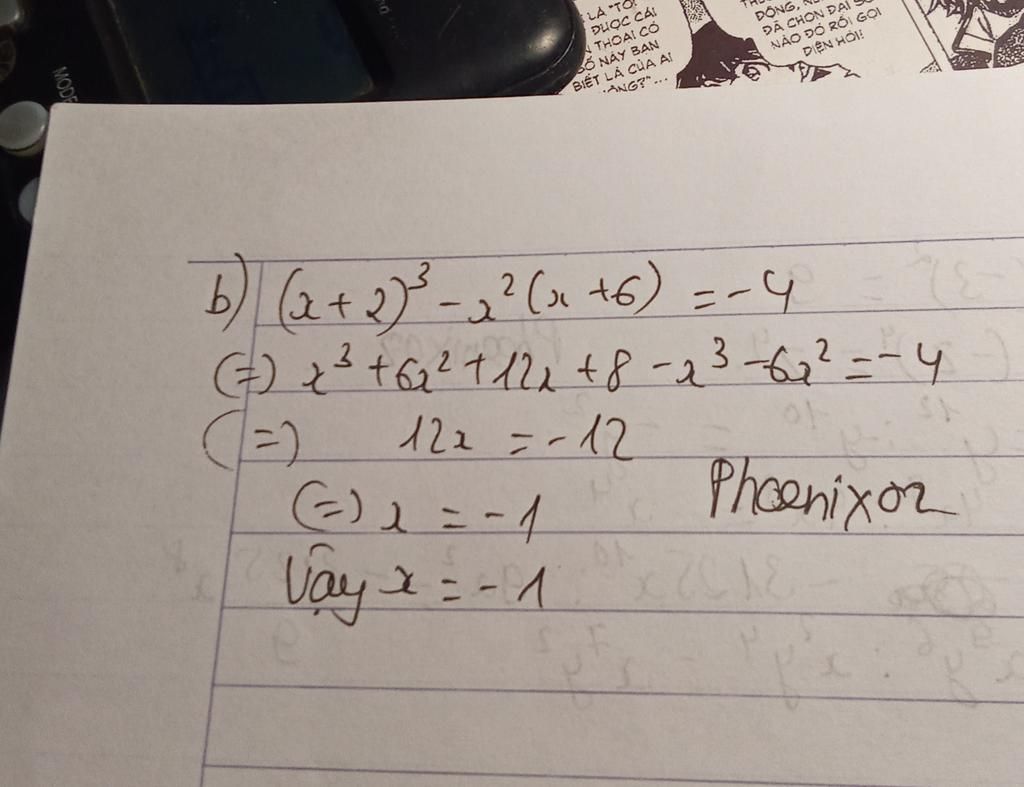 MODE
LÀ "TỚ
ĐƯỢC CÁI
THOẠI CÓ
SỐ NÀY BẠN
BIẾT LÀ CỦA AI
ĐỘNG,
ĐÃ CHỌN ĐẠI SỐ
NÀO ĐÓ RỒI GỌI
ĐIỆN HỎI!
b) (x+2)³ - x²(x+6) = -4
(=) x³ + 6x² + 12x + 8 - x³ - 6x² = -4
(=) 12x = -12
(=) x = -1
Phoenixoz
Vậy x = -1